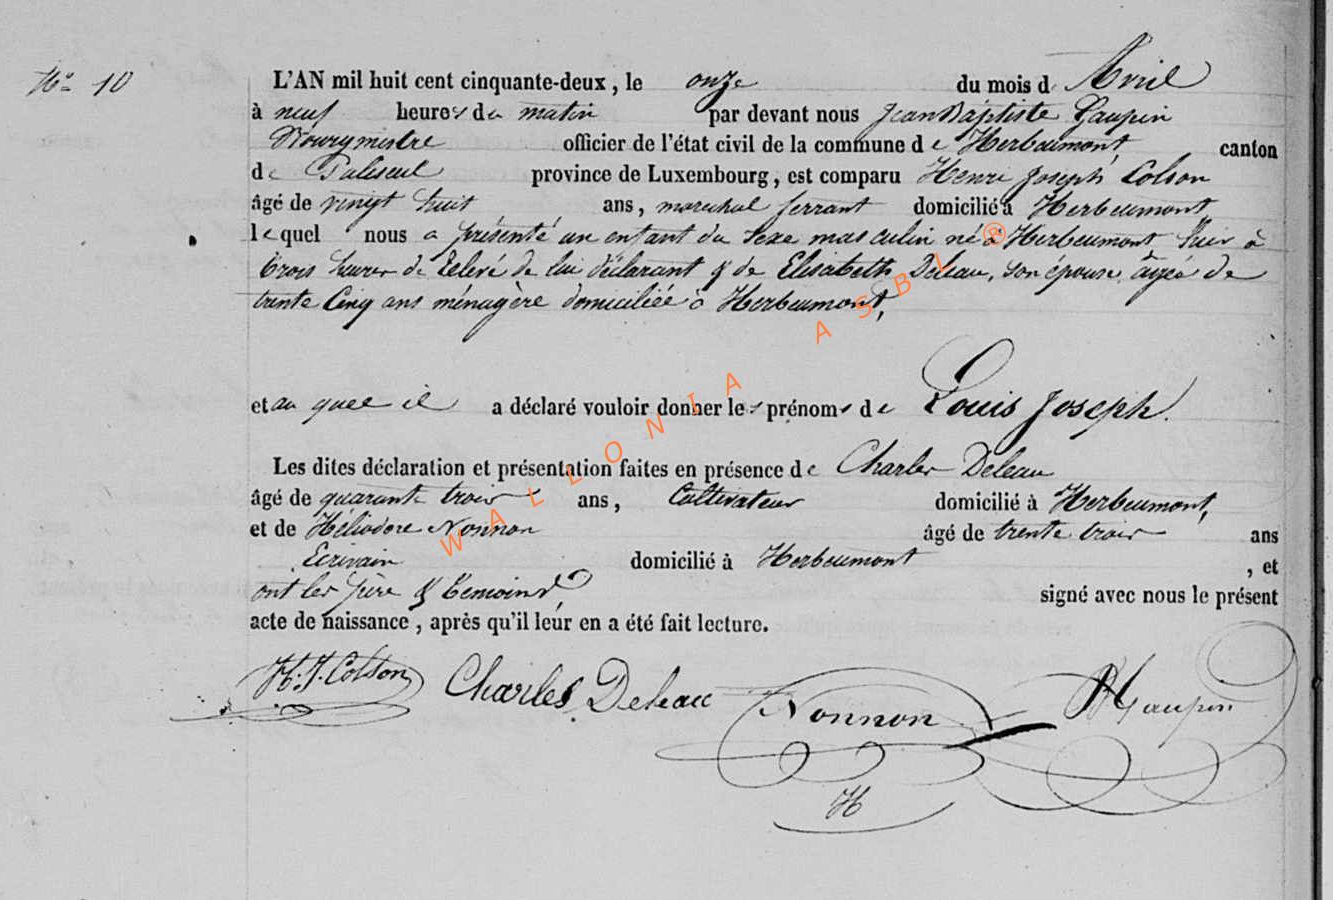 No 10
L'AN mil huit cent cinquante-deux, le onze du mois d' Avril
à neuf heures du matin par devant nous Jean Baptiste Haupin
Bourgmestre officier de l'état civil de la commune de Herbeumont, canton
de Paliseul province de Luxembourg, est comparu Henri Joseph Colson
âgé de vingt huit ans, marechal ferrant domicilié à Herbeumont
lequel nous a présenté un enfant du sexe masculin né à Herbeumont hier à
trois heures de de lui déclarant & de Elisabeth Deleau, son épouse âgée de
trente cinq ans ménagère domiciliée à Herbeumont,
et auquel il a déclaré vouloir donner les prénoms de Louis Joseph.
Les dites déclaration et présentation faites en présence de Charles Deleau
âgé de quarante trois ans, Cultivateur domicilié à Herbeumont,
et de Héliodore Nonnon âgé de trente trois ans
Ecrivain domicilié à Herbeumont, et
ont les père & temoins signé avec nous le présent
acte de naissance, après qu'il leur en a été fait lecture.
H. J. Colson Charles Deleau Nonnon Haupin
H
WALLONIA ASBL ®